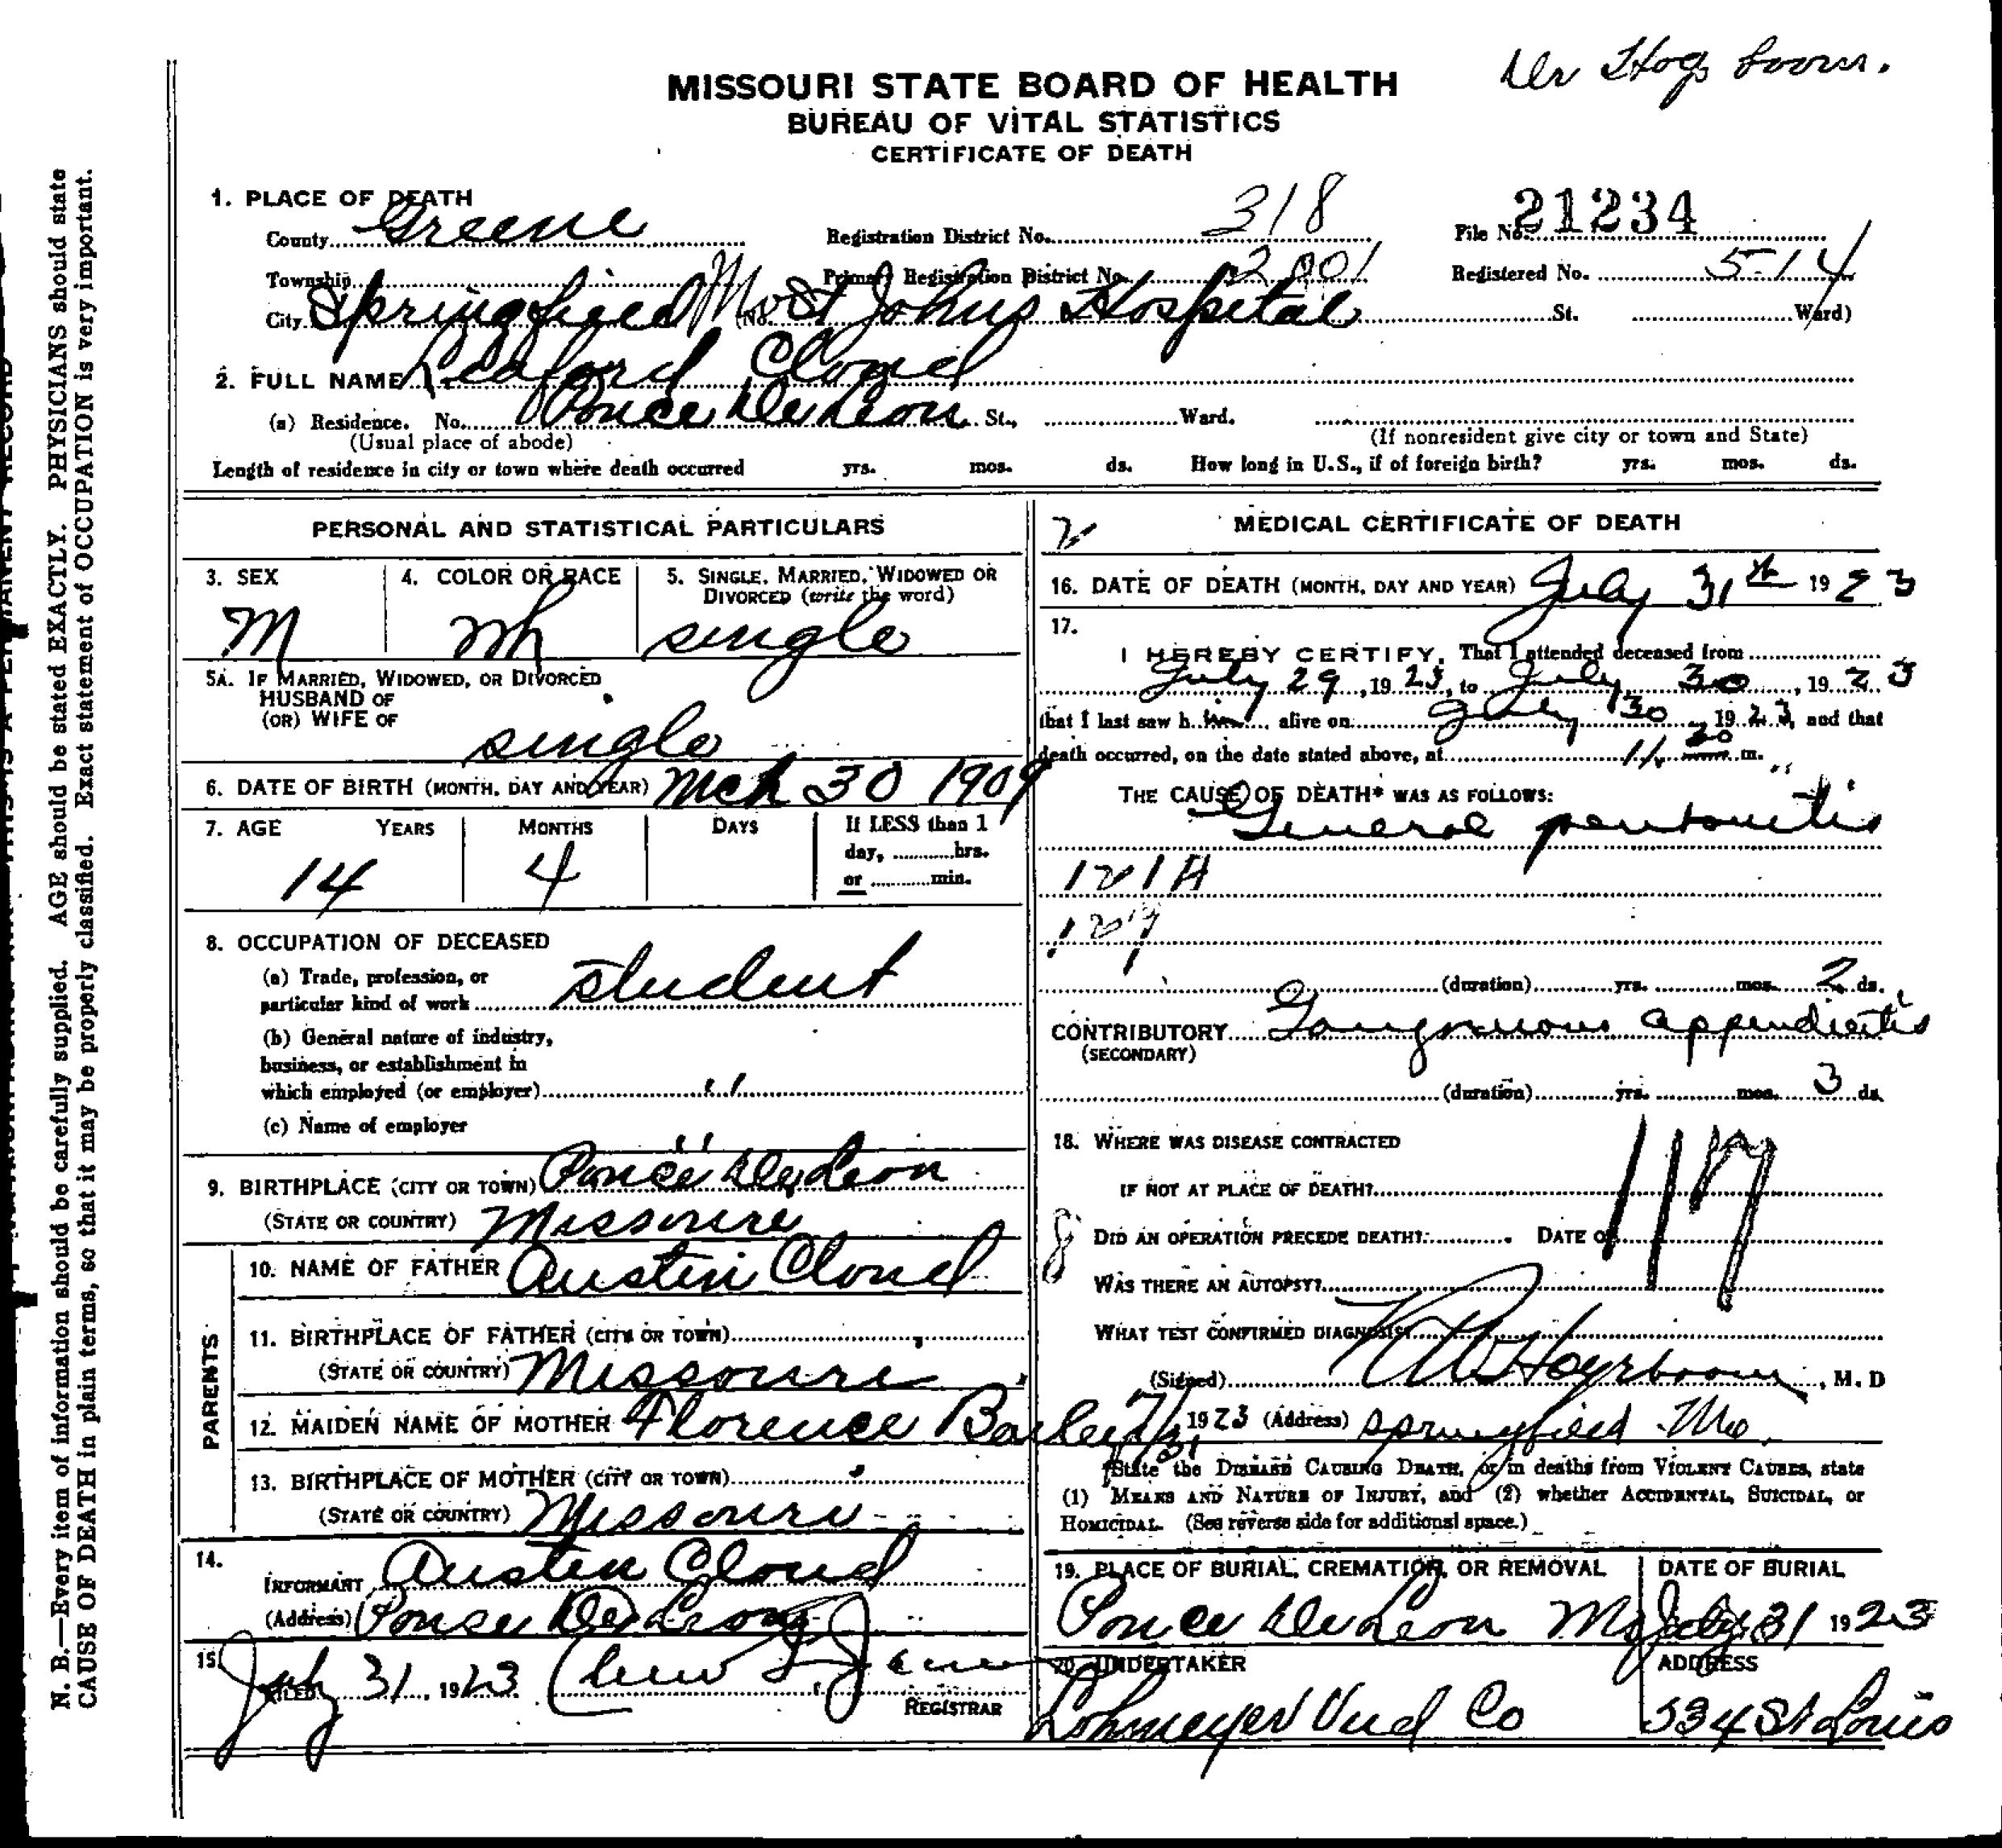 Dr Hogeboom.
MISSOURI STATE BOARD OF HEALTH
BUREAU OF VITAL STATISTICS
CERTIFICATE OF DEATH
1. PLACE OF DEATH
County Greene Registration District No. 318 File No. 21234
Township Primary Registration District No. 2001 Registered No. 514
City Springfield Mo (No. St Johns Hospital St. Ward)
2. FULL NAME Ledford Cloud
(a) Residence. No. Ponce De Leon St., Ward.
(Usual place of abode) (If nonresident give city or town and State)
Length of residence in city or town where death occurred yrs. mos. ds. How long in U.S., if of foreign birth? yrs. mos. ds.
PERSONAL AND STATISTICAL PARTICULARS
3. SEX 4. COLOR OR RACE 5. SINGLE, MARRIED, WIDOWED OR
DIVORCED (write the word)
M wh single
5A. IF MARRIED, WIDOWED, OR DIVORCED
HUSBAND OF
(OR) WIFE OF
single
6. DATE OF BIRTH (MONTH, DAY AND YEAR) Mch 30 1909
7. AGE YEARS MONTHS DAYS If LESS than 1
day, hrs.
or min.
14 4
8. OCCUPATION OF DECEASED
(a) Trade, profession, or
particular kind of work student
(b) General nature of industry,
business, or establishment in
which employed (or employer) "
(c) Name of employer "
9. BIRTHPLACE (CITY OR TOWN) Ponce De Leon
(STATE OR COUNTRY) Missouri
PARENTS
10. NAME OF FATHER Austin Cloud
11. BIRTHPLACE OF FATHER (CITY OR TOWN)
(STATE OR COUNTRY) Missouri
12. MAIDEN NAME OF MOTHER Florence Barley
13. BIRTHPLACE OF MOTHER (CITY OR TOWN)
(STATE OR COUNTRY) Missouri
14.
INFORMANT Austin Cloud
(Address) Ponce De Leon
15.
FILED July 31, 1923
REGISTRAR
MEDICAL CERTIFICATE OF DEATH
16. DATE OF DEATH (MONTH, DAY AND YEAR) July 31st 1923
17.
I HEREBY CERTIFY, That I attended deceased from
July 29, 1923, to July 30, 1923
that I last saw him alive on July 30, 1923, and that
death occurred, on the date stated above, at 11.20 m.
THE CAUSE OF DEATH* WAS AS FOLLOWS:
General peritonitis
121A
(duration) yrs. mos. 2 ds.
CONTRIBUTORY Gangrenous appendicitis
(SECONDARY)
(duration) yrs. mos. 3 ds.
18. WHERE WAS DISEASE CONTRACTED
IF NOT AT PLACE OF DEATH?
117
8
DID AN OPERATION PRECEDE DEATH? DATE OF
WAS THERE AN AUTOPSY?
WHAT TEST CONFIRMED DIAGNOSIS?
(Signed) Hogeboom, M. D
7/31 1923 (Address) Springfield Mo.
*State the DISEASE CAUSING DEATH, or in deaths from VIOLENT CAUSES, state
(1) MEANS AND NATURE OF INJURY, and (2) whether ACCIDENTAL, SUICIDAL, or
HOMICIDAL. (See reverse side for additional space.)
19. PLACE OF BURIAL, CREMATION, OR REMOVAL DATE OF BURIAL
Ponce De Leon Mo July 31 1923
20. UNDERTAKER ADDRESS
Lohmeyer Und Co 534 St Louis
N. B.—Every item of information should be carefully supplied. AGE should be stated EXACTLY. PHYSICIANS should state
CAUSE OF DEATH in plain terms, so that it may be properly classified. Exact statement of OCCUPATION is very important.